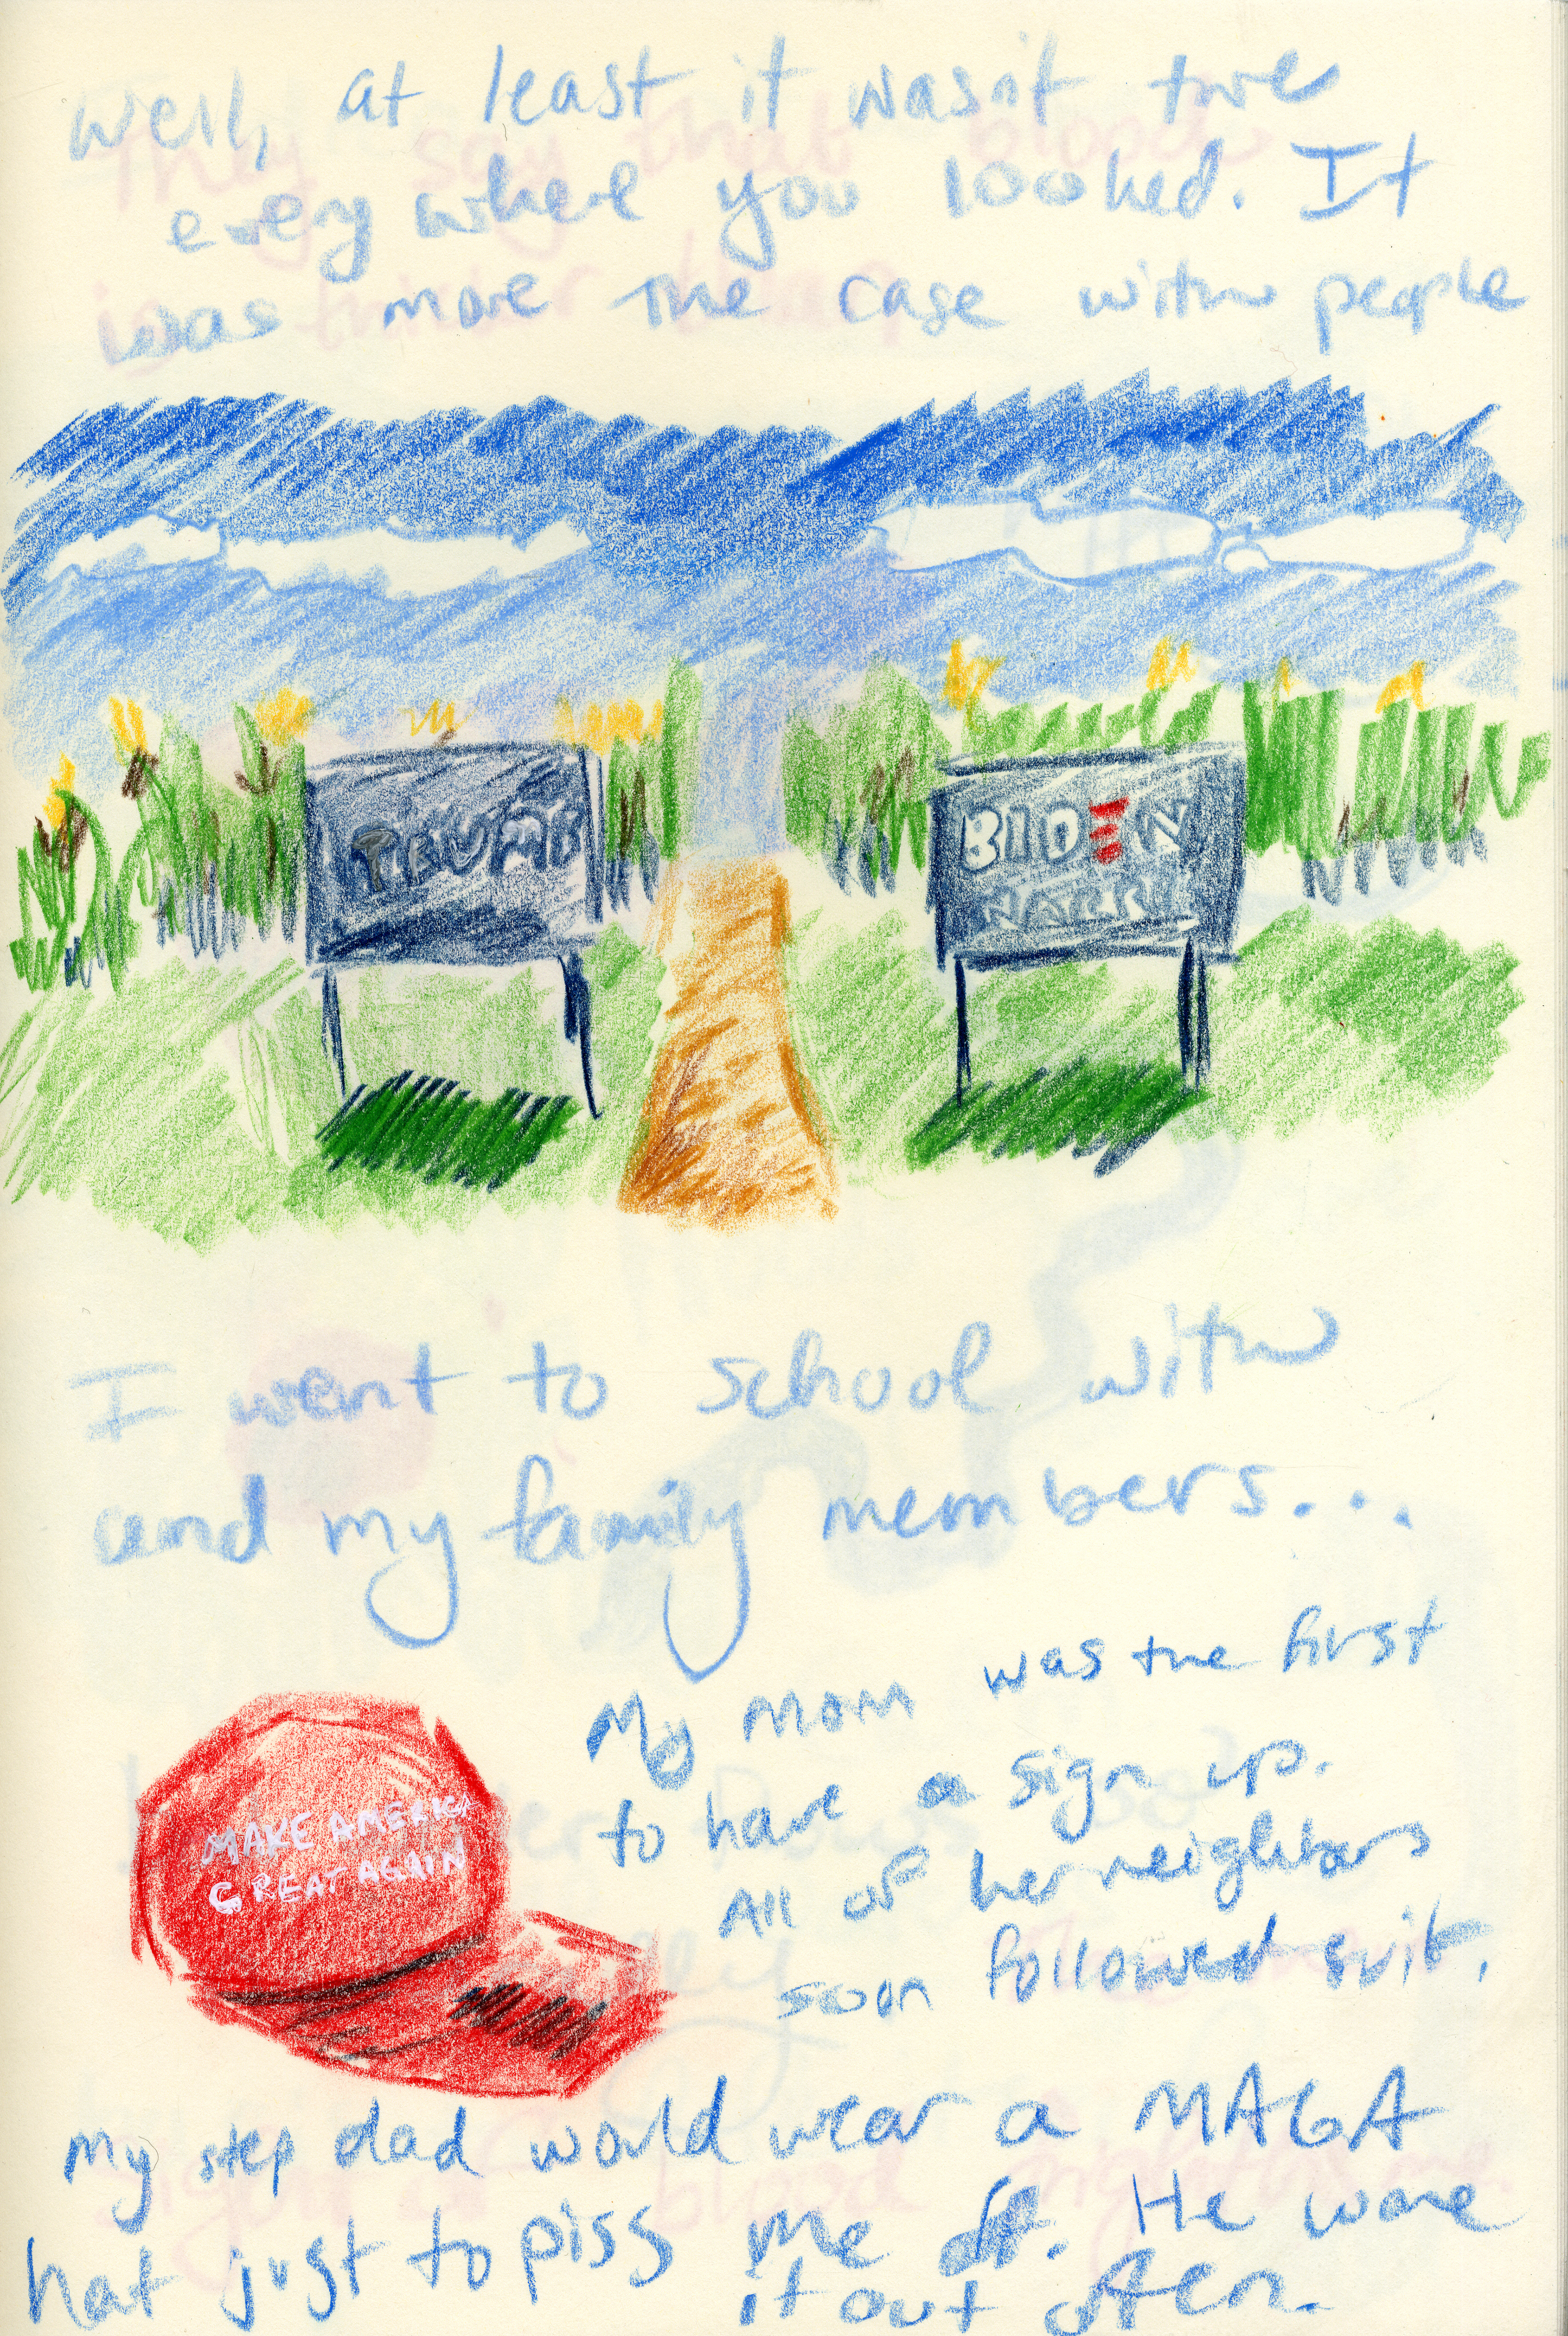 Well, at least it wasn't there
every where you looked. It
was more the case with people
TRUMP
BIDEN
I went to school with
and my family members...
My mom was the first
to have a sign up.
All of her neighbors
soon followed suit.
MAKE AMERICA
GREAT AGAIN
My step dad would wear a MAGA
hat just to piss me off. He wore
it out often.